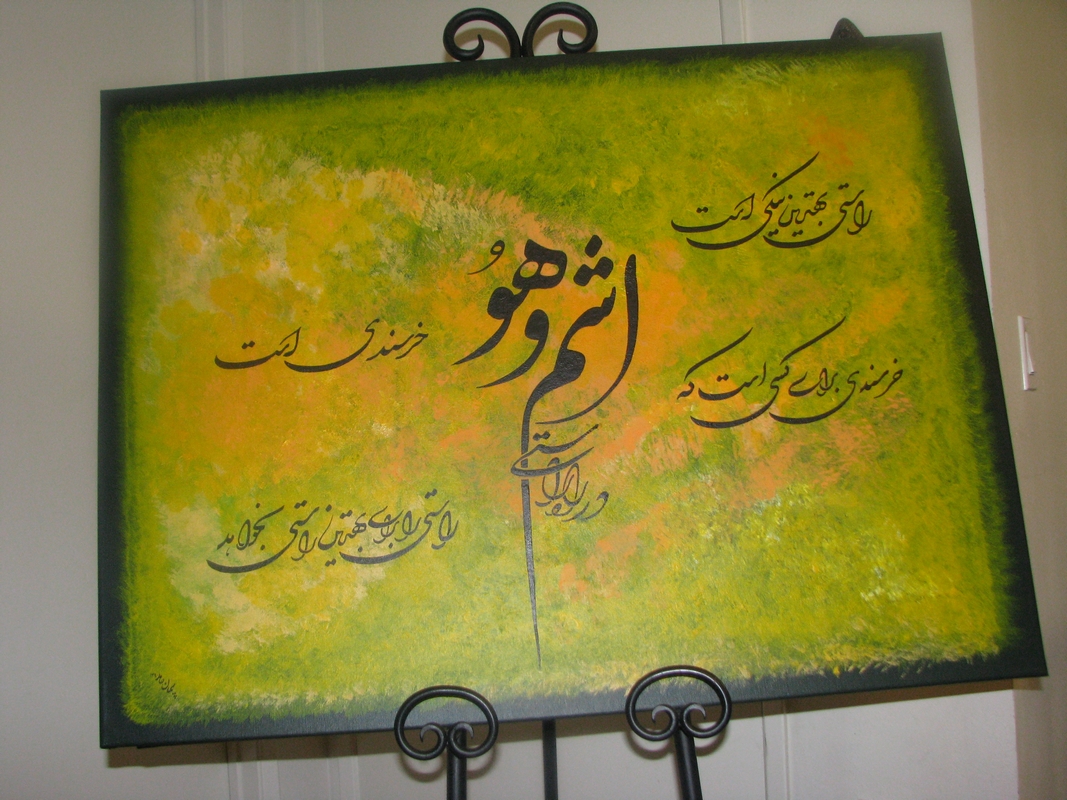 اشم وهو
درود بر راستی
راستی بهترین نیکی است
خرسندی است
خرسندی برای کسی است که
راستی را برای بهترین راستی بخواهد